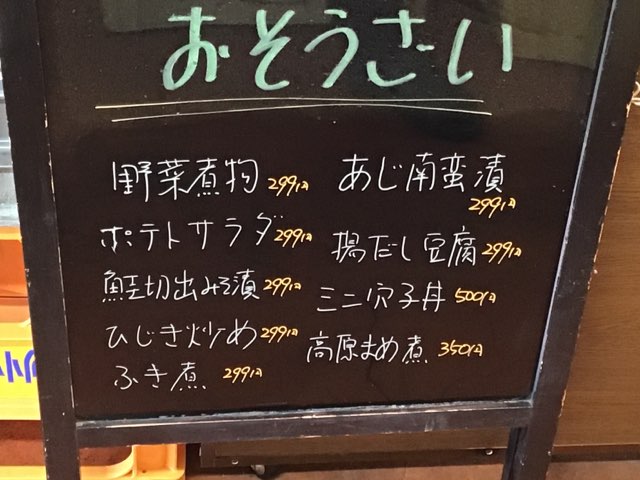 おそうざい
野菜煮物 299円
ポテトサラダ 299円
鮭切出みそ漬 299円
ひじき炒め 299円
ふき煮 299円
あじ南蛮漬
299円
揚だし豆腐 299円
ミニ穴子丼 500円
高原まめ煮 350円